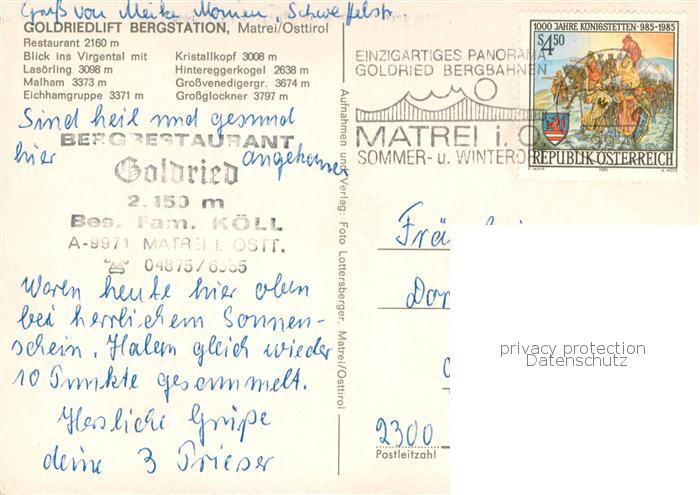 Gruß von Meike,
GOLDRIEDLIFT BERGSTATION, Matrei/Osttirol
Restaurant 2160 m
Blick ins Virgental mit Kristallkopf 3008 m
Lasörling 3098 m Hintereggerkogel 2638 m
Malham 3373 m Großvenedigergr. 3674 m
Eichhamgruppe 3371 m Großglockner 3797 m
Sind heil und gesund
hier angekommen
BERGRESTAURANT
Goldried
2.150 m
Bes. Fam. KÖLL
A-9971 MATREI i. OSTT.
☎ 04875/
Waren heute hier oben
bei herrlichem Sonnen-
schein. Haben gleich wieder
10 Punkte gesammelt.
Herzliche Grüße
deine 3 Trieser
Aufnahmen und Verlag: Foto Lottersberger, Matrei/Osttirol
EINZIGARTIGES PANORAMA
GOLDRIED BERGBAHNEN
MATREI i. O
SOMMER- u. WINTERO
1000 JAHRE KÖNIGSTETTEN · 985-1985
S 4.50
REPUBLIK ÖSTERREICH
1985
Frä
Dor
2300
Postleitzahl
privacy protection
Datenschutz